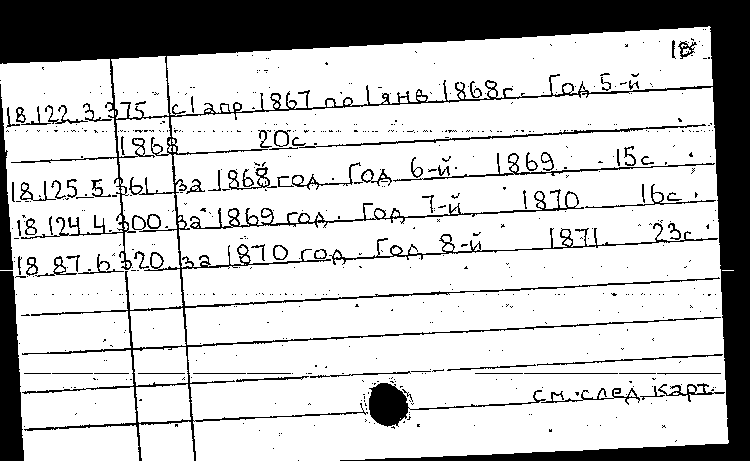 18
18.122.3.375 с 1 апр. 1867 по 1 янв 1868г. Год 5-й
1868 20с.
18.125.5.361. за 1868 год. Год 6-й. 1869. 15с.
18.124.4.300. за 1869 год. Год 7-й 1870 16с.
18.87.6.320. за 1870 год. Год 8-й 1871. 23с.
см. след. карт.